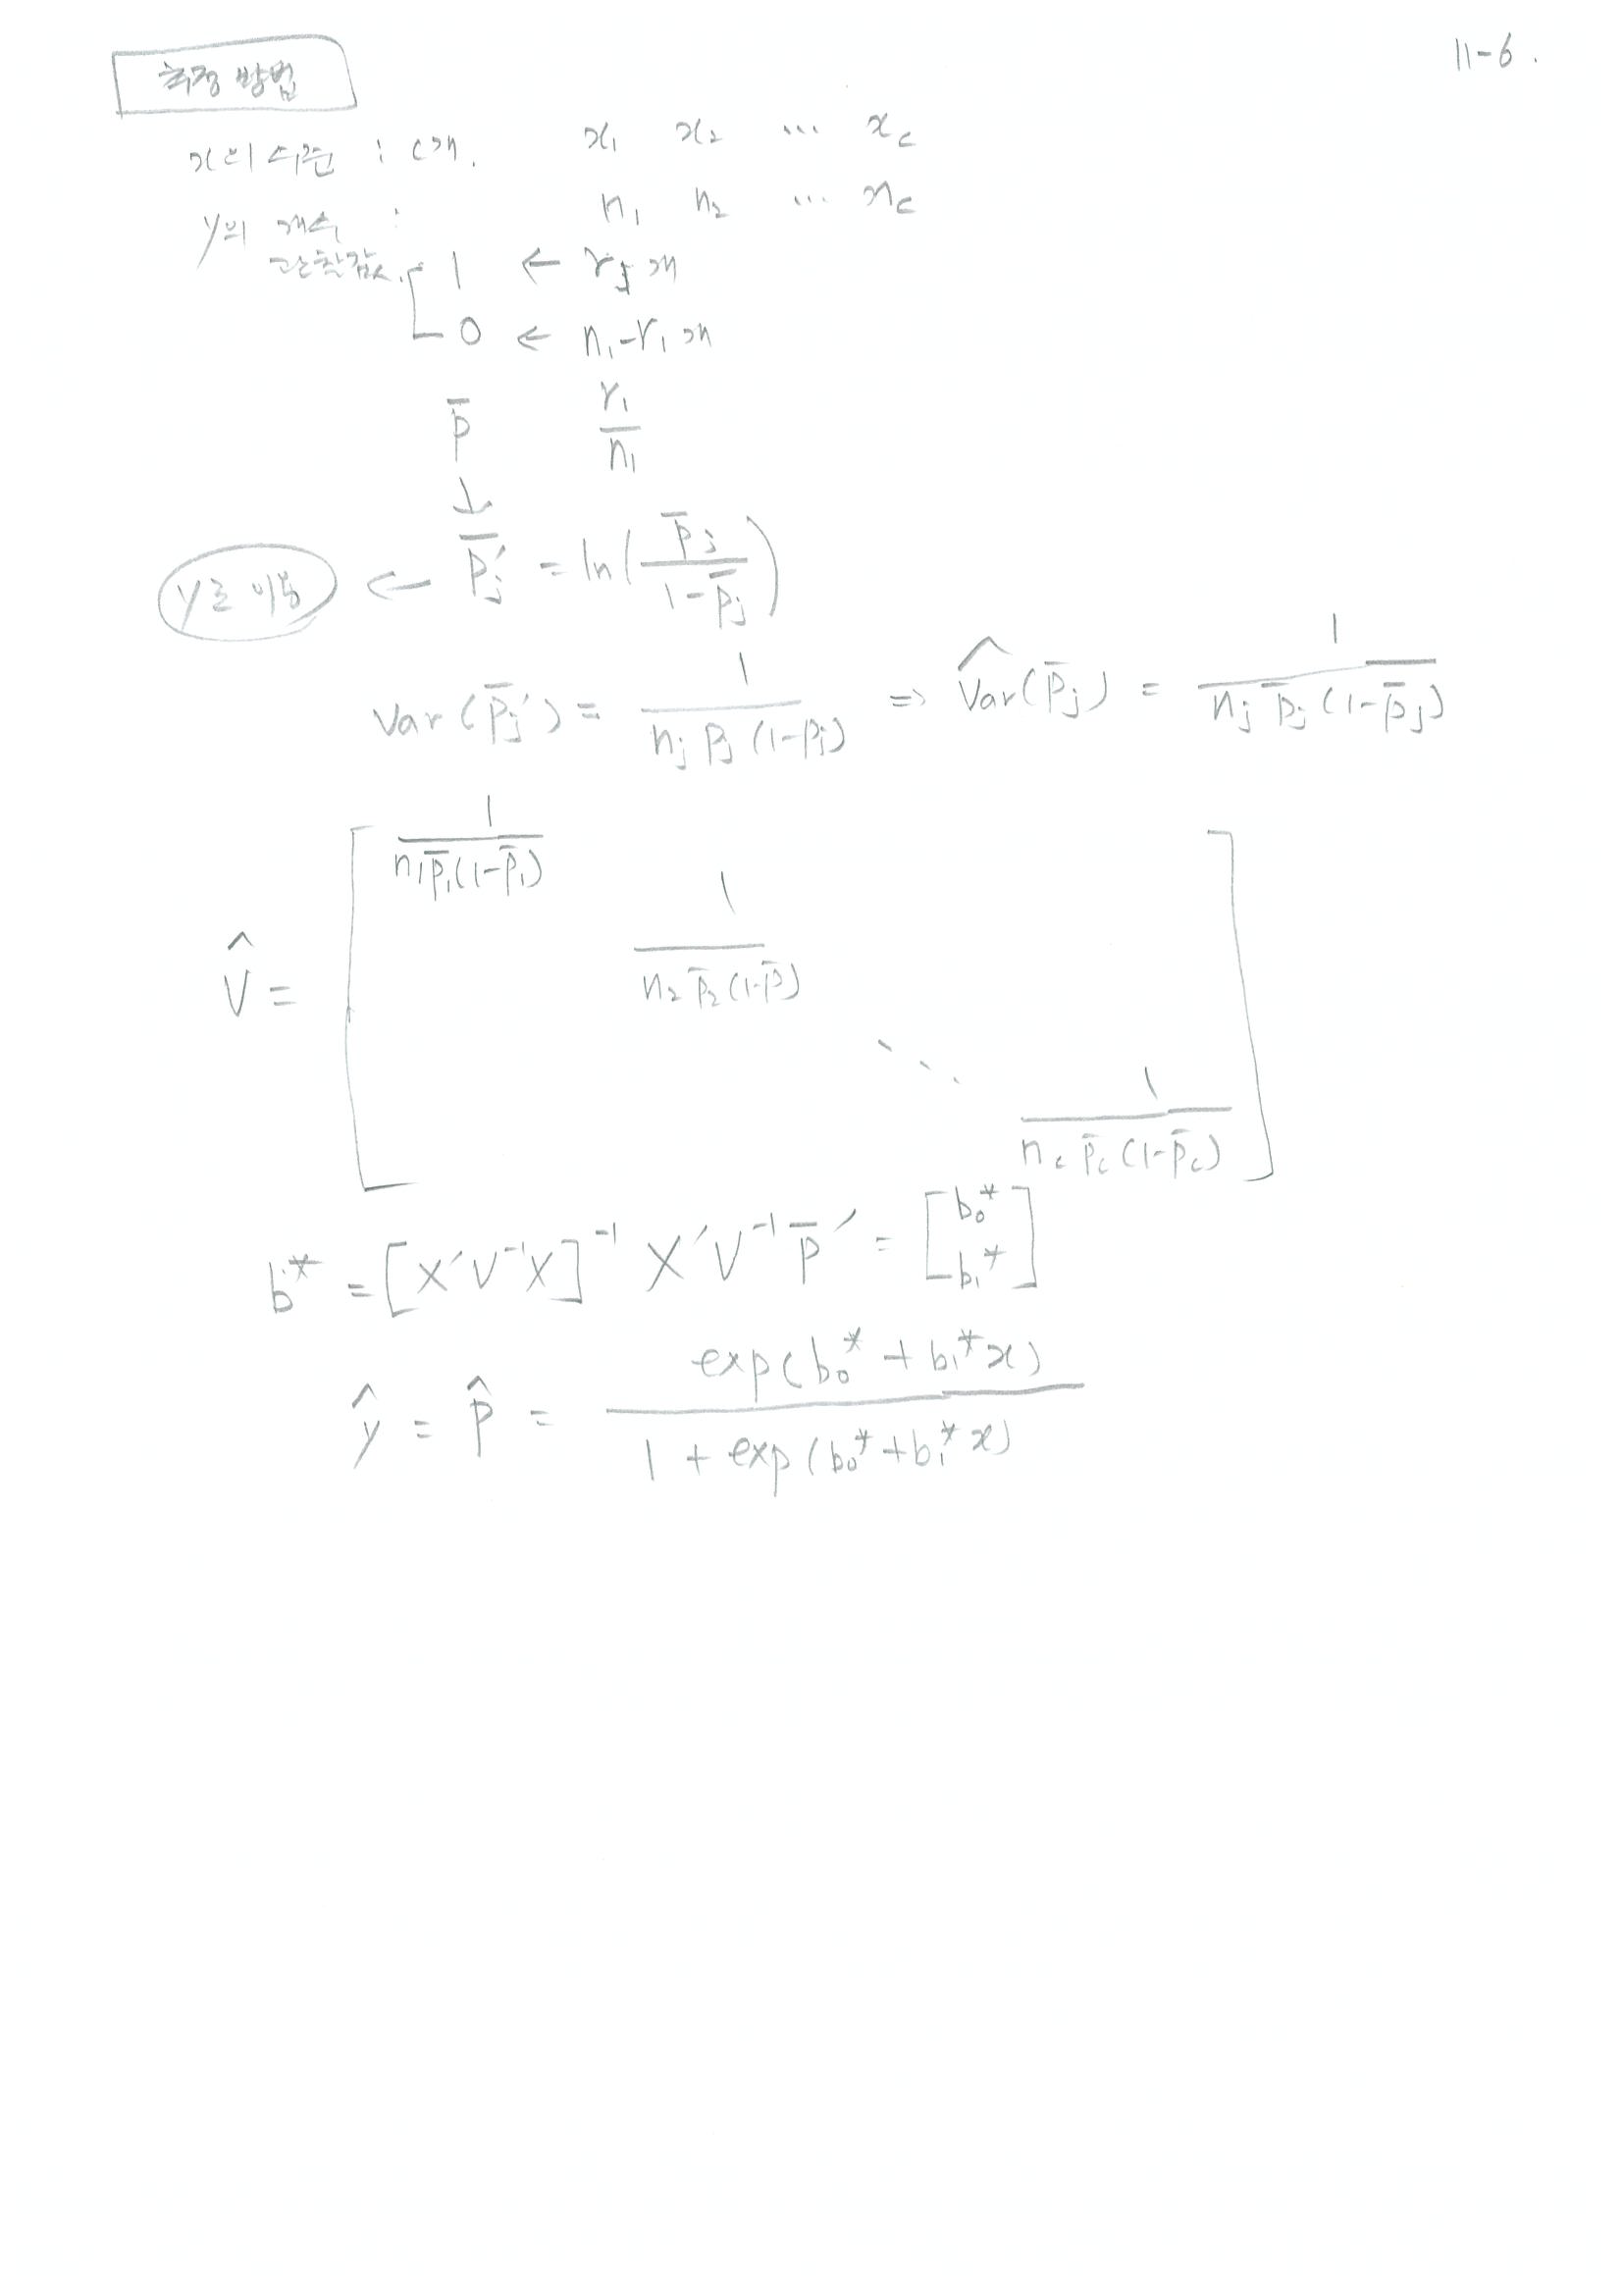 11-6.
추정 방법
x의 수준 : c개. x₁ x₂ … x_c
y의 개수 : n₁ n₂ … n_c
관찰값. 1 ← r_j개
0 ← n₁-r₁개
p̄ r₁/n₁
↓
y로 이용 ← p̄_j′ = ln(p̄_j/(1-p̄_j))
Var(p̄_j′) = 1/(n_j p_j(1-p_j)) ⇒ V̂ar(p̄_j) = 1/(n_j p̄_j(1-p̄_j))
1/(n₁p̄₁(1-p̄₁))
1/(n₂p̄₂(1-p̄))
V̂ =
⋱
1/(n_c p̄_c(1-p̄_c))
b* = [X′V⁻¹X]⁻¹ X′V⁻¹p̄′ = [b₀* b₁*]
ŷ = p̂ = exp(b₀*+b₁*x)/(1+exp(b₀*+b₁*x))